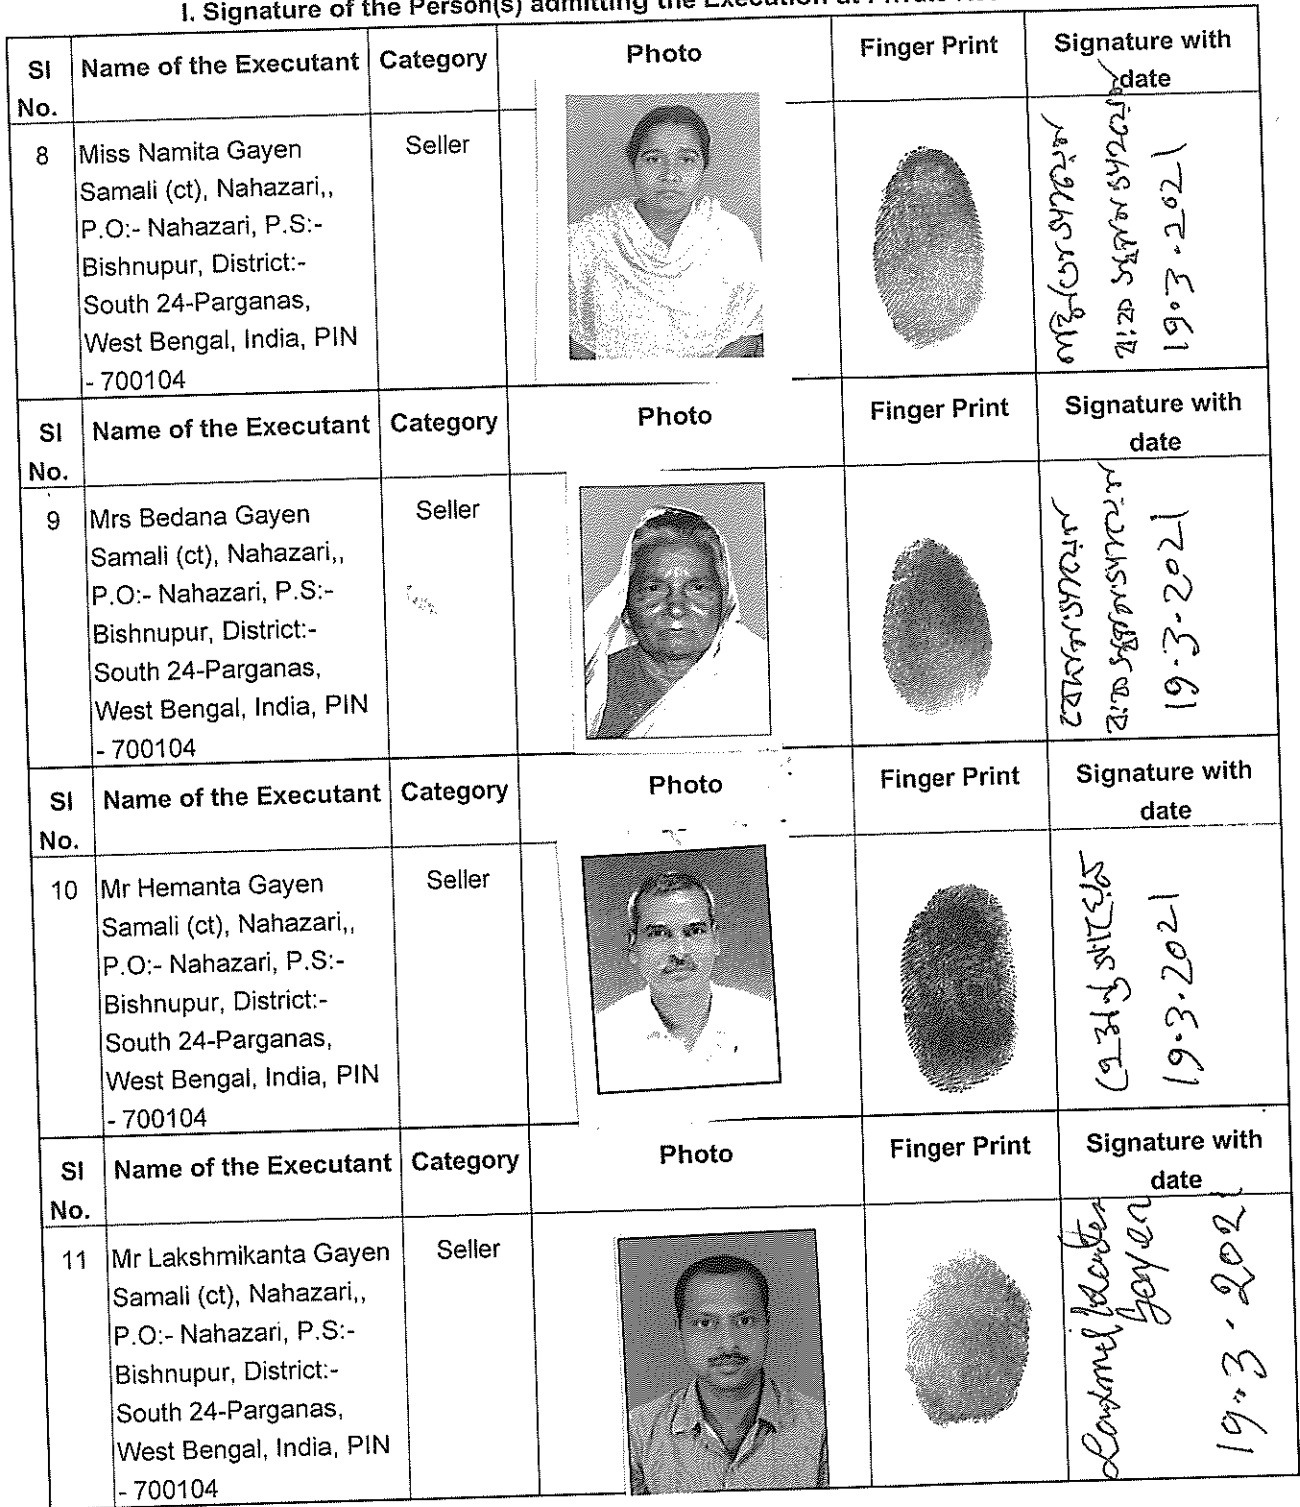 I. Signature of the Person(s) admitting the Execution at Private
Sl No.
Name of the Executant
Category
Photo
Finger Print
Signature with date
8
Miss Namita Gayen
Samali (ct), Nahazari,,
P.O:- Nahazari, P.S:-
Bishnupur, District:-
South 24-Parganas,
West Bengal, India, PIN
- 700104
Seller
19.3.2021
Sl No.
Name of the Executant
Category
Photo
Finger Print
Signature with date
9
Mrs Bedana Gayen
Samali (ct), Nahazari,,
P.O:- Nahazari, P.S:-
Bishnupur, District:-
South 24-Parganas,
West Bengal, India, PIN
- 700104
Seller
19.3.2021
Sl No.
Name of the Executant
Category
Photo
Finger Print
Signature with date
10
Mr Hemanta Gayen
Samali (ct), Nahazari,,
P.O:- Nahazari, P.S:-
Bishnupur, District:-
South 24-Parganas,
West Bengal, India, PIN
- 700104
Seller
19.3.2021
Sl No.
Name of the Executant
Category
Photo
Finger Print
Signature with date
11
Mr Lakshmikanta Gayen
Samali (ct), Nahazari,,
P.O:- Nahazari, P.S:-
Bishnupur, District:-
South 24-Parganas,
West Bengal, India, PIN
- 700104
Seller
Gayen
19.3.2021